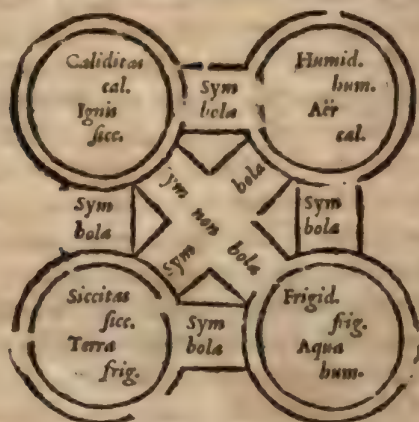 Caliditas
cal.
Ignis
ſicc.
Sym
bola
Humid.
hum.
Aër
cal.
Sym
bola
ym
bola
non
Sym
bola
Sym
bola
Siccitas
ſicc.
Terra
frig.
Sym
bola
Frigid.
frig.
Aqua
hum.